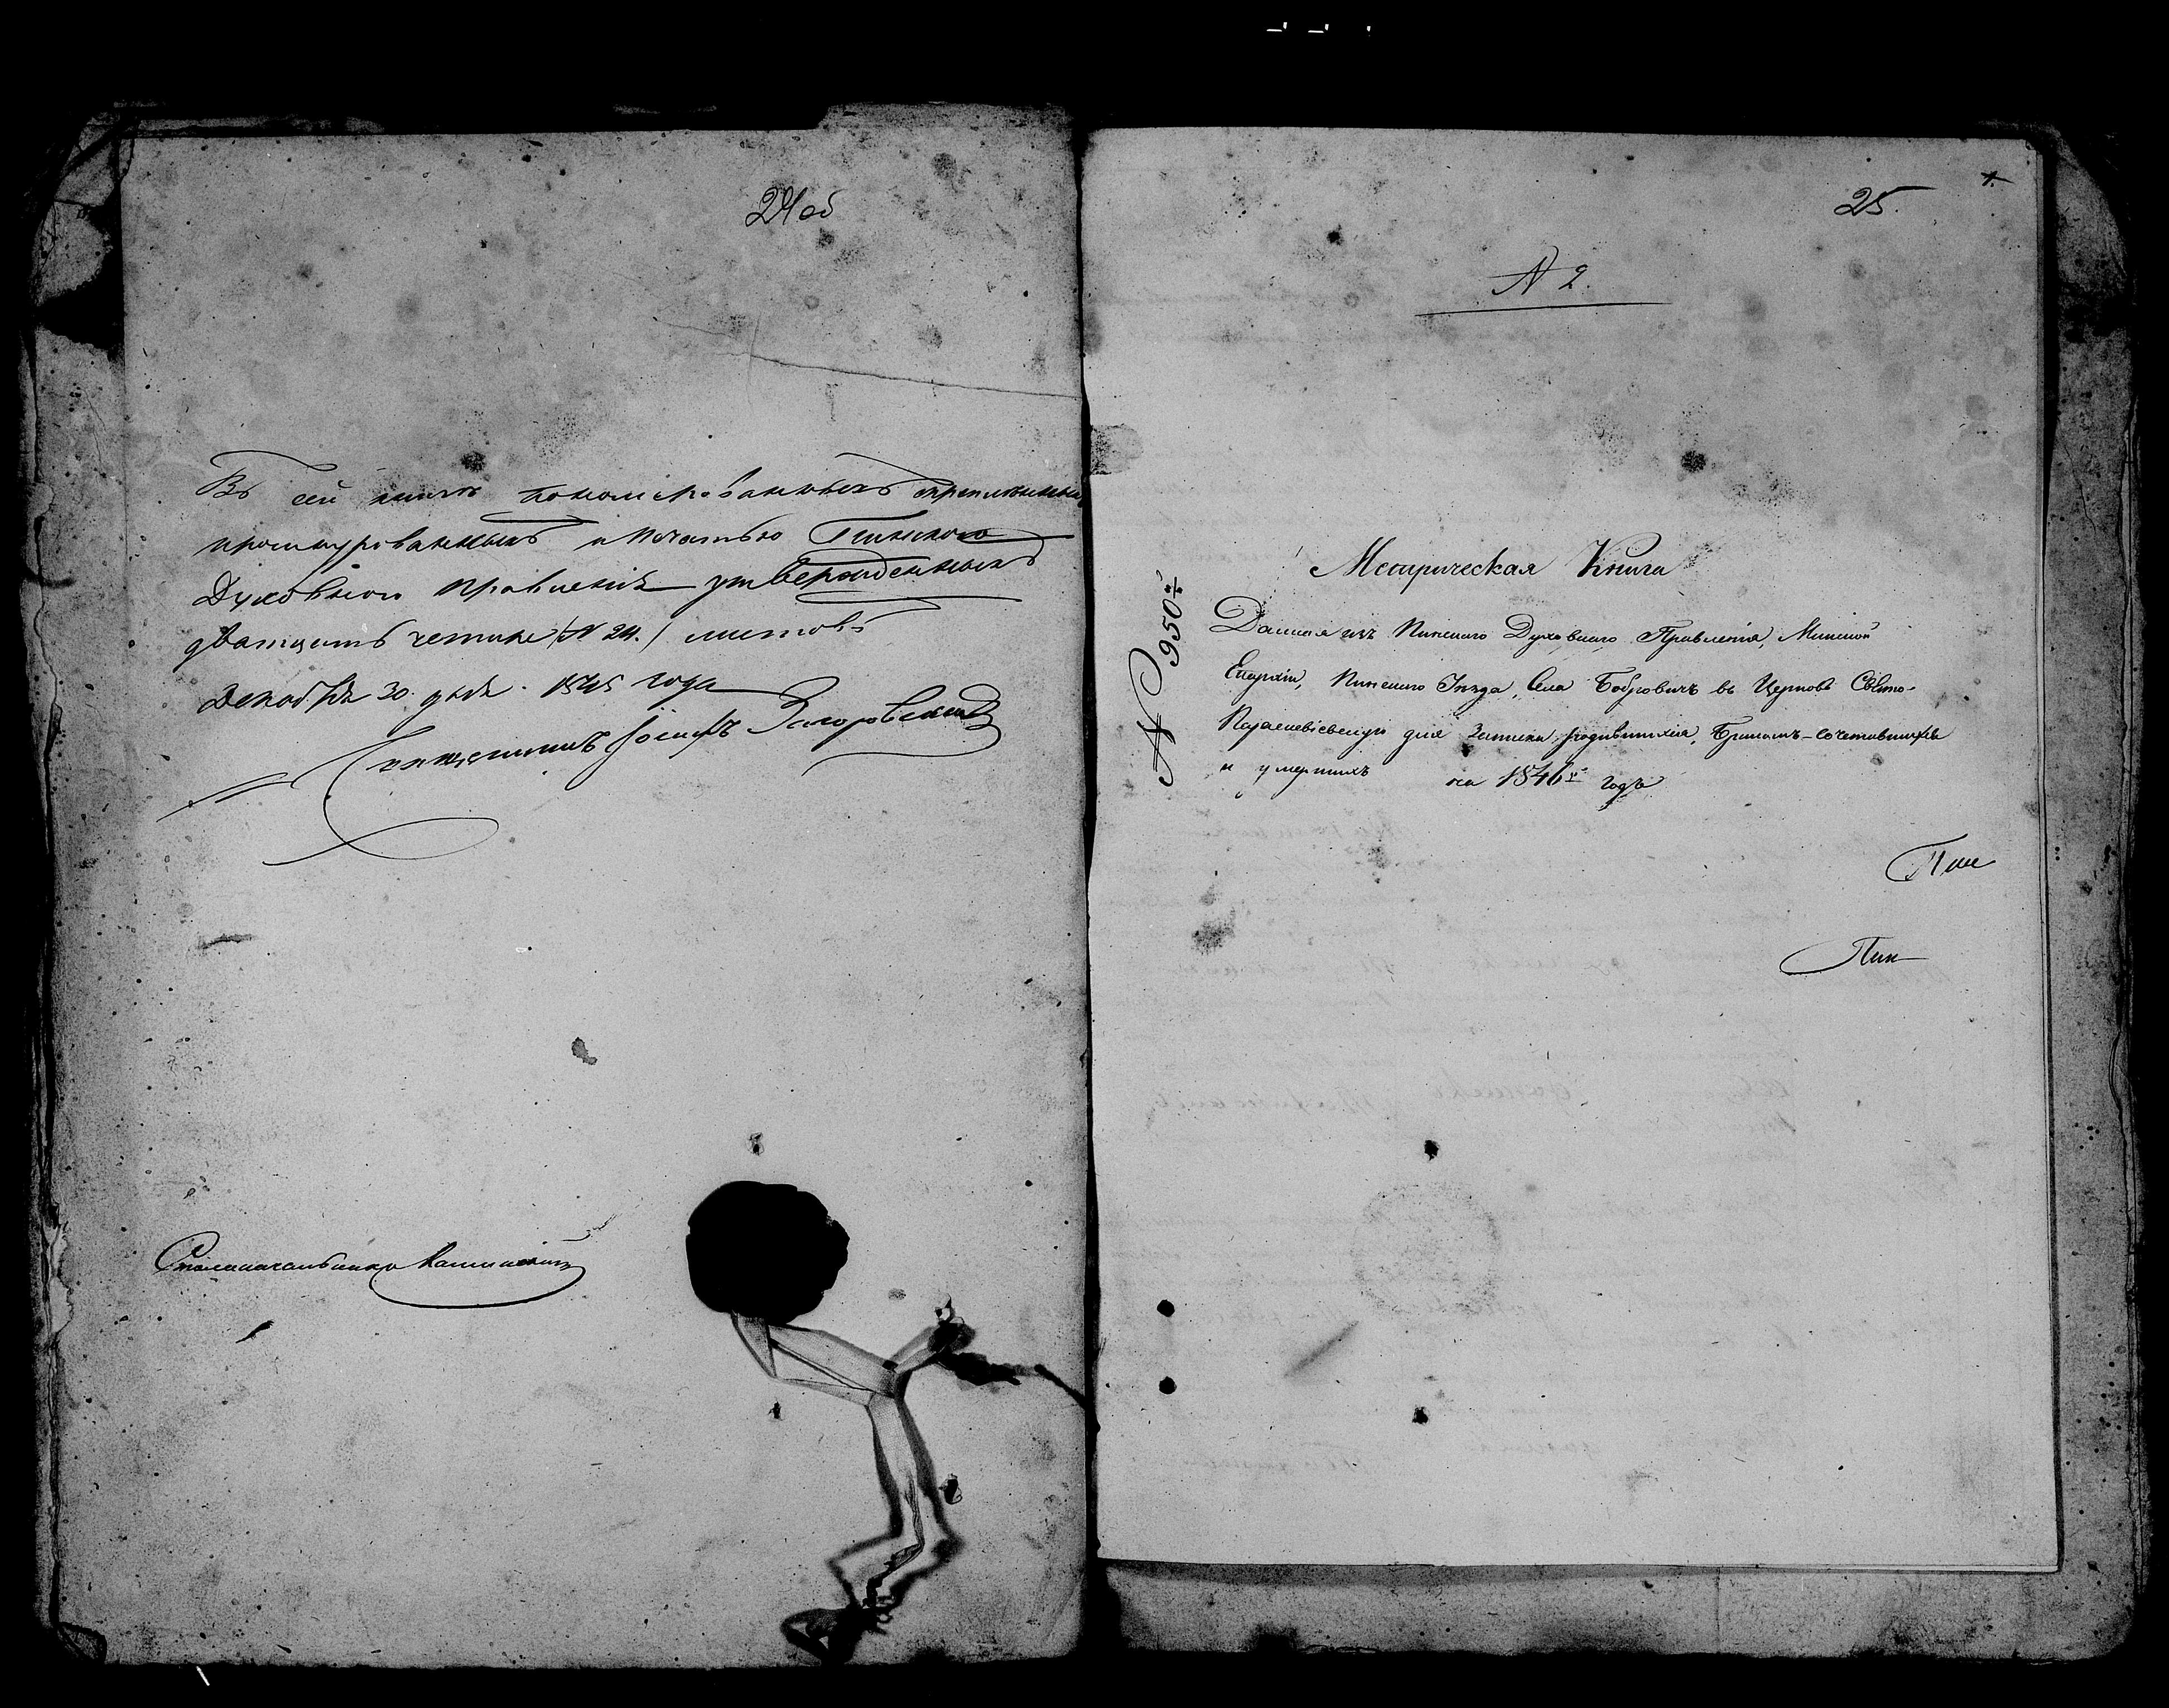 24об
Въ сей книгѣ пономерованныхъ скрепленныхъ
прошнурованныхъ и печатью Пинского
Духовного Правленія утвержденныхъ
дватцать четыре /№ 24./ листовъ
Декабря 30. дня. 1845 года
Священникъ Іосифъ Загоровскій
Столоначальникъ
25.
1.
N 2.
№ 950
Метрическая Книга
Данная изъ Пинскаго Духовнаго Правленія, Минской
Епархіи, Пинскаго Уѣзда, Села Бобровичъ въ Церковь Свято-
Параскевіевскую для записки родившихся, Бракомъ-сочетавшихся
и умершихъ на 1846й годъ
Пин
Пин